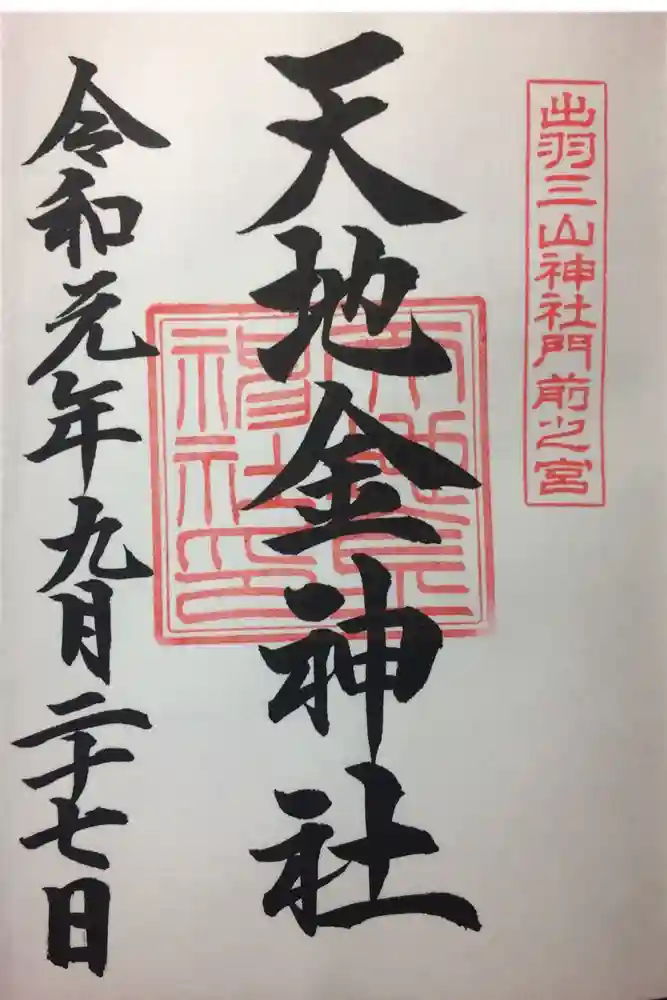 出羽三山神社門前之宮
天地金神社
天地金神社印
令和元年九月二十七日